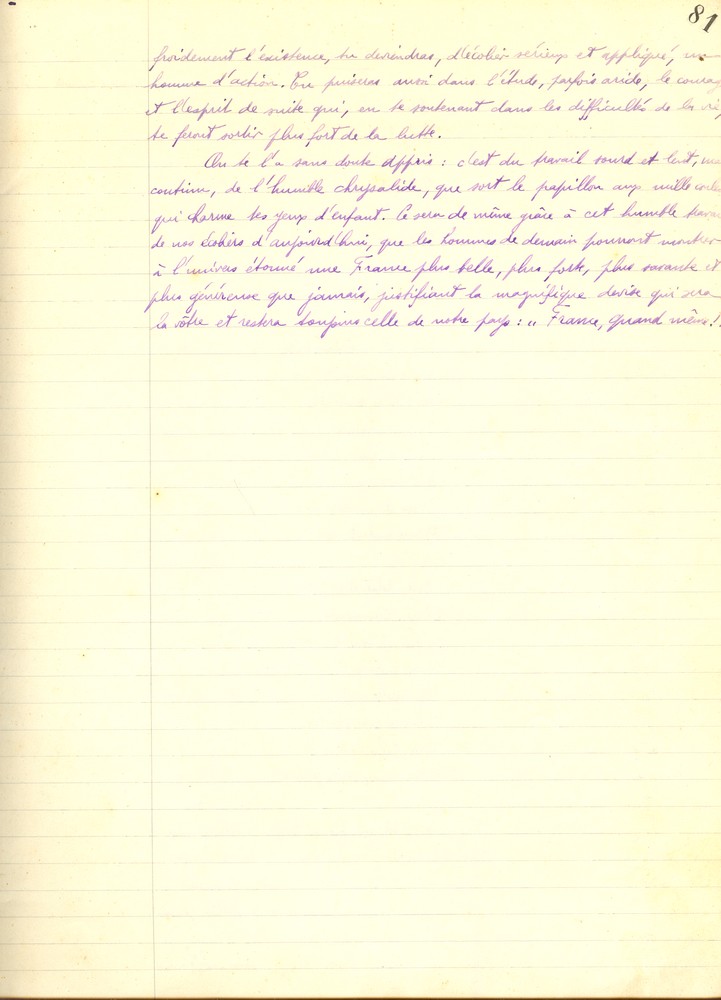 81
froidement l'existence, tu deviendras, d'écolier sérieux et appliqué, un
homme d'action. Tu puiseras aussi dans l'étude, parfois aride, le courag
et l'esprit de suite qui, en te soutenant dans les difficultés de la vie,
te feront sortir plus fort de la lutte.
On te l'a sans doute appris : c'est du travail sourd et lent, mais
continu, de l'humble chrysalide, que sort le papillon aux mille coule
qui charme tes yeux d'enfant. Ce sera de même grâce à cet humble travai
de nos écoliers d'aujourd'hui, que les hommes de demain pourront montrer
à l'univers étonné une France plus belle, plus forte, plus savante et
plus généreuse que jamais, justifiant la magnifique devise qui sera
la vôtre et restera toujours celle de notre pays : " France, quand même !